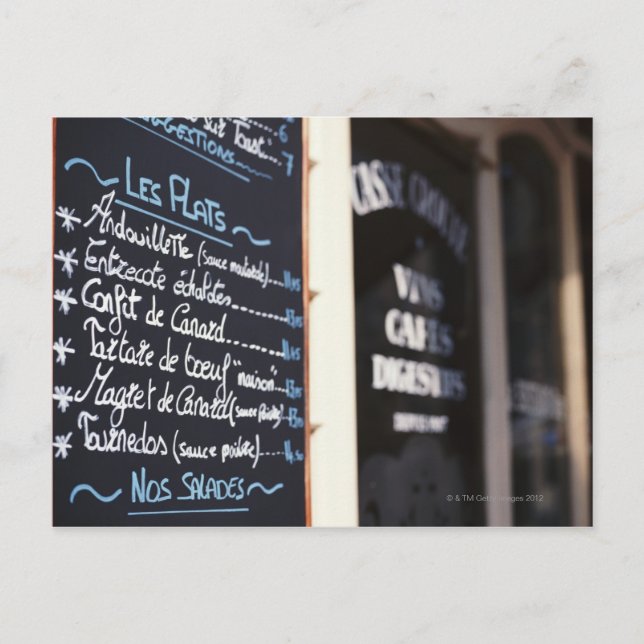 sur Toast" 6
SUGGESTIONS 7
LES PLATS
* Andouillette (sauce moutarde)....11.85
* Entrecote échalotes..........13.85
* Confit de Canard..........11.85
* Tartare de boeuf "maison"...13.85
* Magret de Canard (sauce poivre)...13.85
* Tournedos (sauce poivre)......14.50
NOS SALADES
CASSE CROUTE
VINS
CAFES
DIGESTIFS
© & TM Getty Images 2012